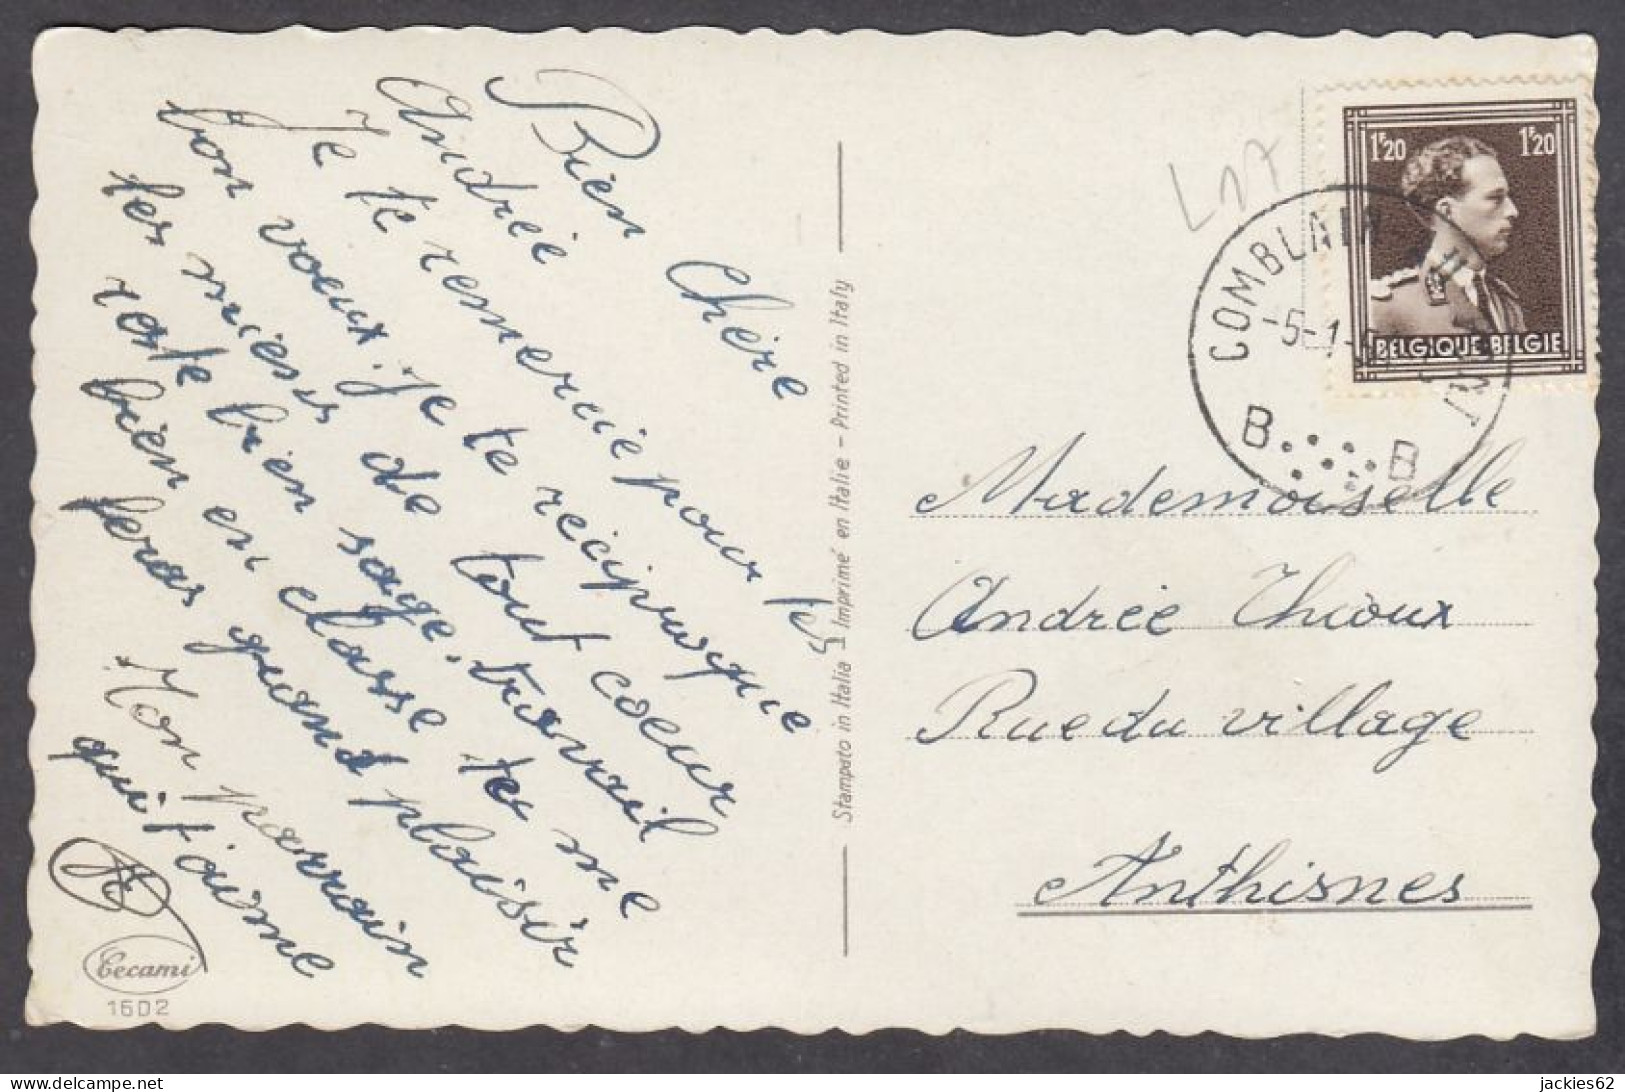 Bien Chère
Andrée
Je te remercie pour tes
bon voeux. Je te réciproque
les miens de tout coeur
reste bien sage. travail
bien en classe te me
feras grand plaisir
Mon parrain
qui t'aime
Cecami
1602
Stampato in Italia - Imprimé en Italie - Printed in Italy
L27
1F20 1F20
BELGIQUE-BELGIE
COMBLAIN
-5-1-
B B
Mademoiselle
Andrée Thioux
Rue du village
Anthisnes
delcampe.net
jackies62